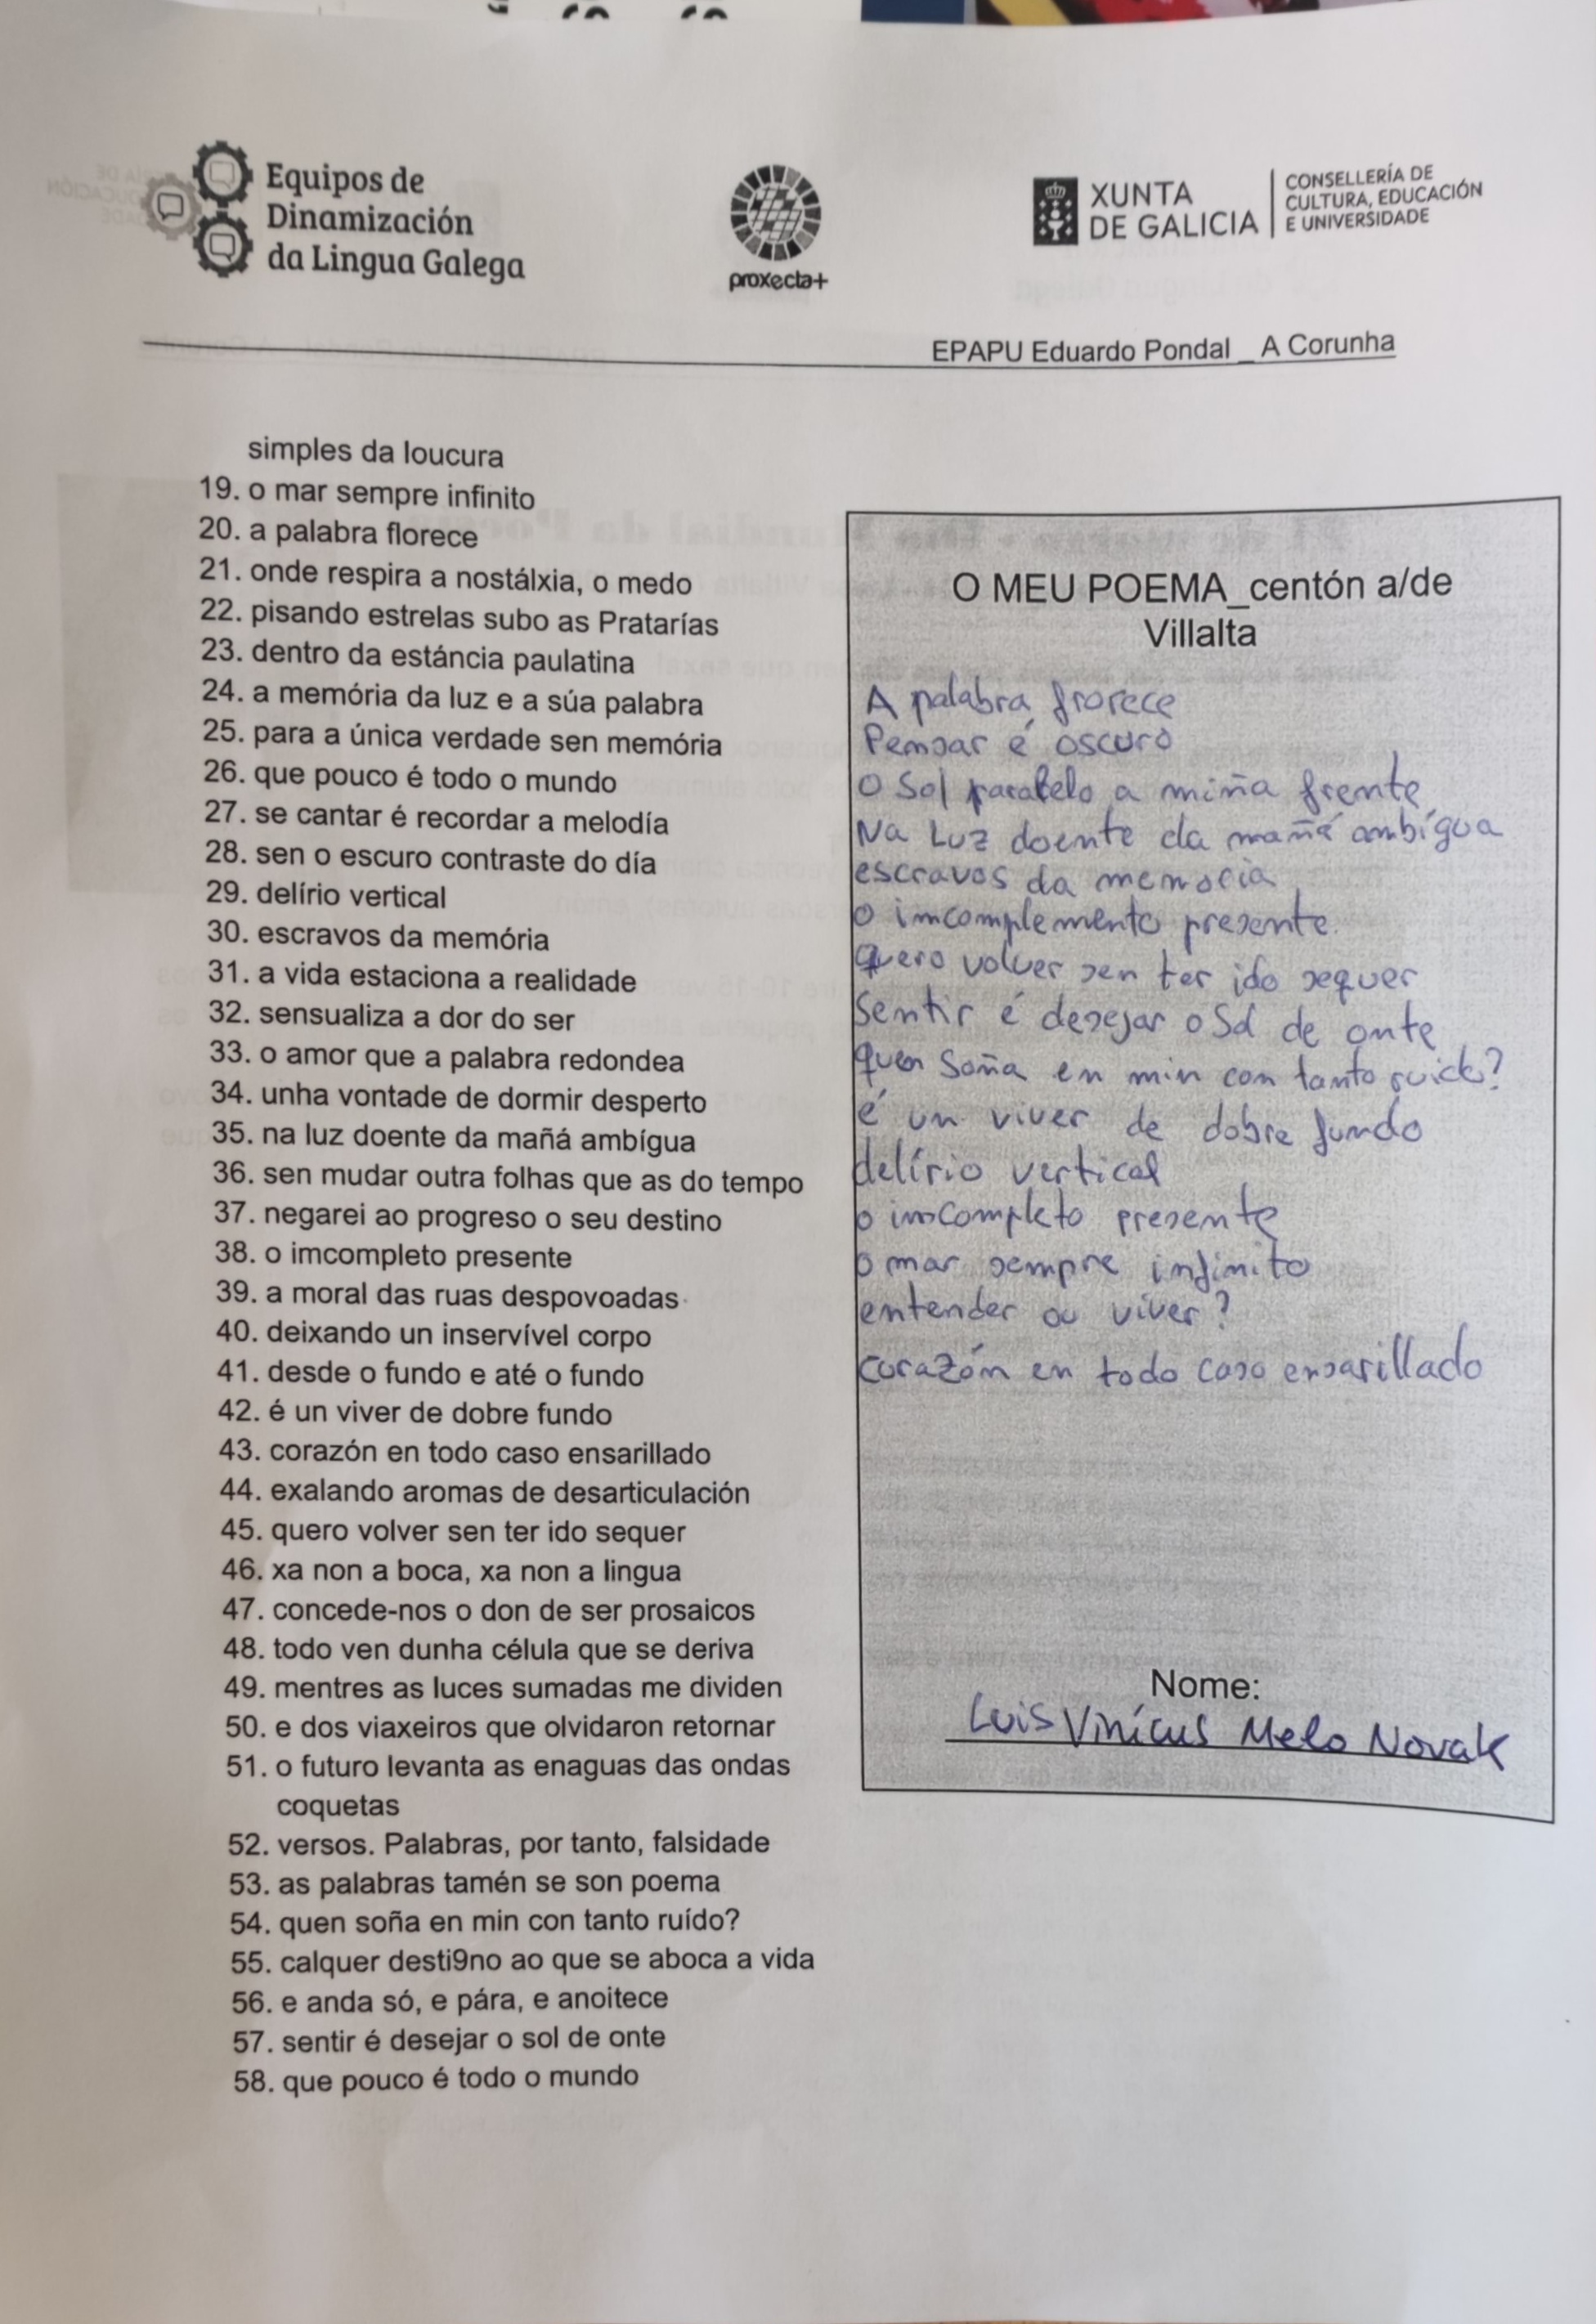 Equipos de
Dinamización
da Lingua Galega
proxecta+
XUNTA
DE GALICIA
CONSELLERÍA DE
CULTURA, EDUCACIÓN
E UNIVERSIDADE
EPAPU Eduardo Pondal _ A Corunha
simples da loucura
19. o mar sempre infinito
20. a palabra florece
21. onde respira a nostálxia, o medo
22. pisando estrelas subo as Pratarías
23. dentro da estáncia paulatina
24. a memória da luz e a súa palabra
25. para a única verdade sen memória
26. que pouco é todo o mundo
27. se cantar é recordar a melodía
28. sen o escuro contraste do día
29. delírio vertical
30. escravos da memória
31. a vida estaciona a realidade
32. sensualiza a dor do ser
33. o amor que a palabra redondea
34. unha vontade de dormir desperto
35. na luz doente da mañá ambígua
36. sen mudar outra folhas que as do tempo
37. negarei ao progreso o seu destino
38. o imcompleto presente
39. a moral das ruas despovoadas
40. deixando un inservível corpo
41. desde o fundo e até o fundo
42. é un viver de dobre fundo
43. corazón en todo caso ensarillado
44. exalando aromas de desarticulación
45. quero volver sen ter ido sequer
46. xa non a boca, xa non a lingua
47. concede-nos o don de ser prosaicos
48. todo ven dunha célula que se deriva
49. mentres as luces sumadas me dividen
50. e dos viaxeiros que olvidaron retornar
51. o futuro levanta as enaguas das ondas
coquetas
52. versos. Palabras, por tanto, falsidade
53. as palabras tamén se son poema
54. quen soña en min con tanto ruído?
55. calquer desti9no ao que se aboca a vida
56. e anda só, e pára, e anoitece
57. sentir é desejar o sol de onte
58. que pouco é todo o mundo
O MEU POEMA_centón a/de
Villalta
A palabra frorece
Pensar é oscuro
O Sol paralelo a miña frente
Na Luz doente da mañá ambígua
escravos da memoria
o imcomplemento presente.
Quero volver sen ter ido sequer
Sentir é desejar o Sol de onte
quen Soña en min con tanto ruido?
é un viver de dobre fundo
delírio vertical
o imcompleto presente
o mar sempre infinito
entender ou viver?
Corazón en todo caso ensarillado
Nome:
Luis Vinícus Melo Novak